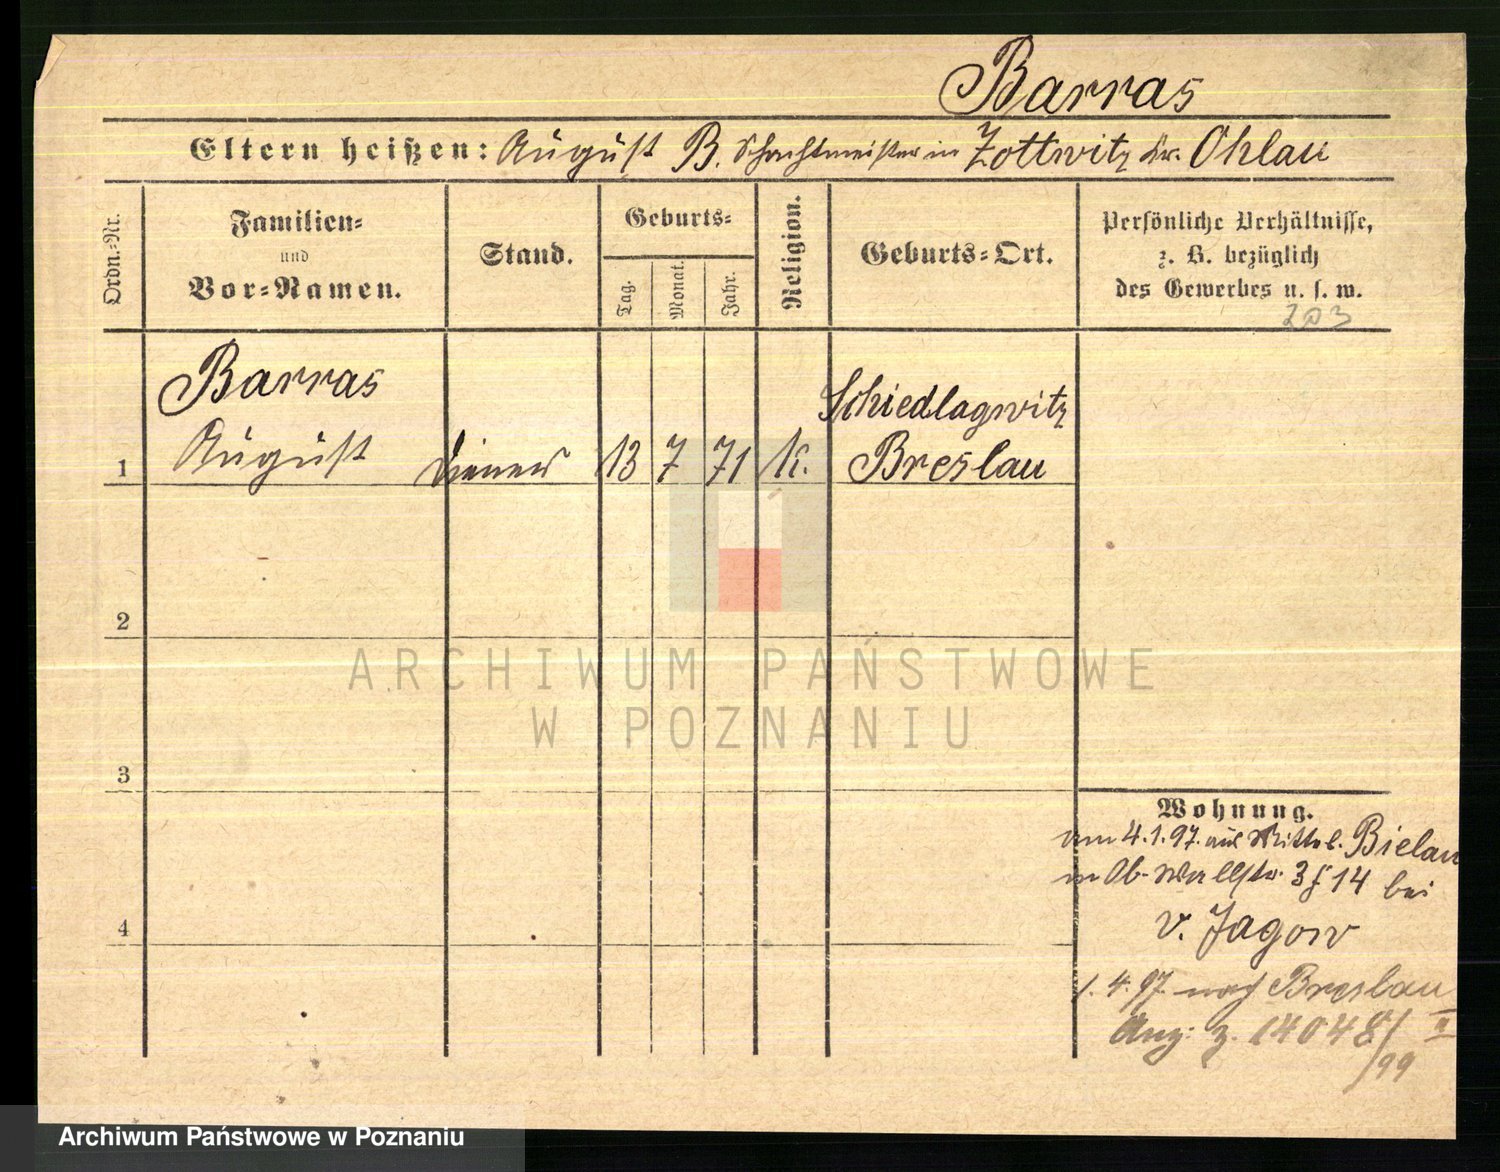 Barras
Eltern heißen: August B. Schachtmeister in Zottwitz Kr. Ohlau
Ordn.-Nr.
Familien-
und
Vor-Namen.
Stand.
Geburts-
Tag.
Monat.
Jahr.
Religion.
Geburts-Ort.
Persönliche Verhältnisse,
z. B. bezüglich
des Gewerbes u. s. w.
203
Barras
Schiedlagwitz
1 August Diener 13 7 71 K. Breslau
2
ARCHIWUM PAŃSTWOWE
W POZNANIU
3
Wohnung.
am 4.1.97. aus Mittel. Bielau
in Ob-Wallstr. 3 14 bei
v. Jagow
1. 4. 97. nach Breslau
4
Anz: z. 14048/II
/99
Archiwum Państwowe w Poznaniu